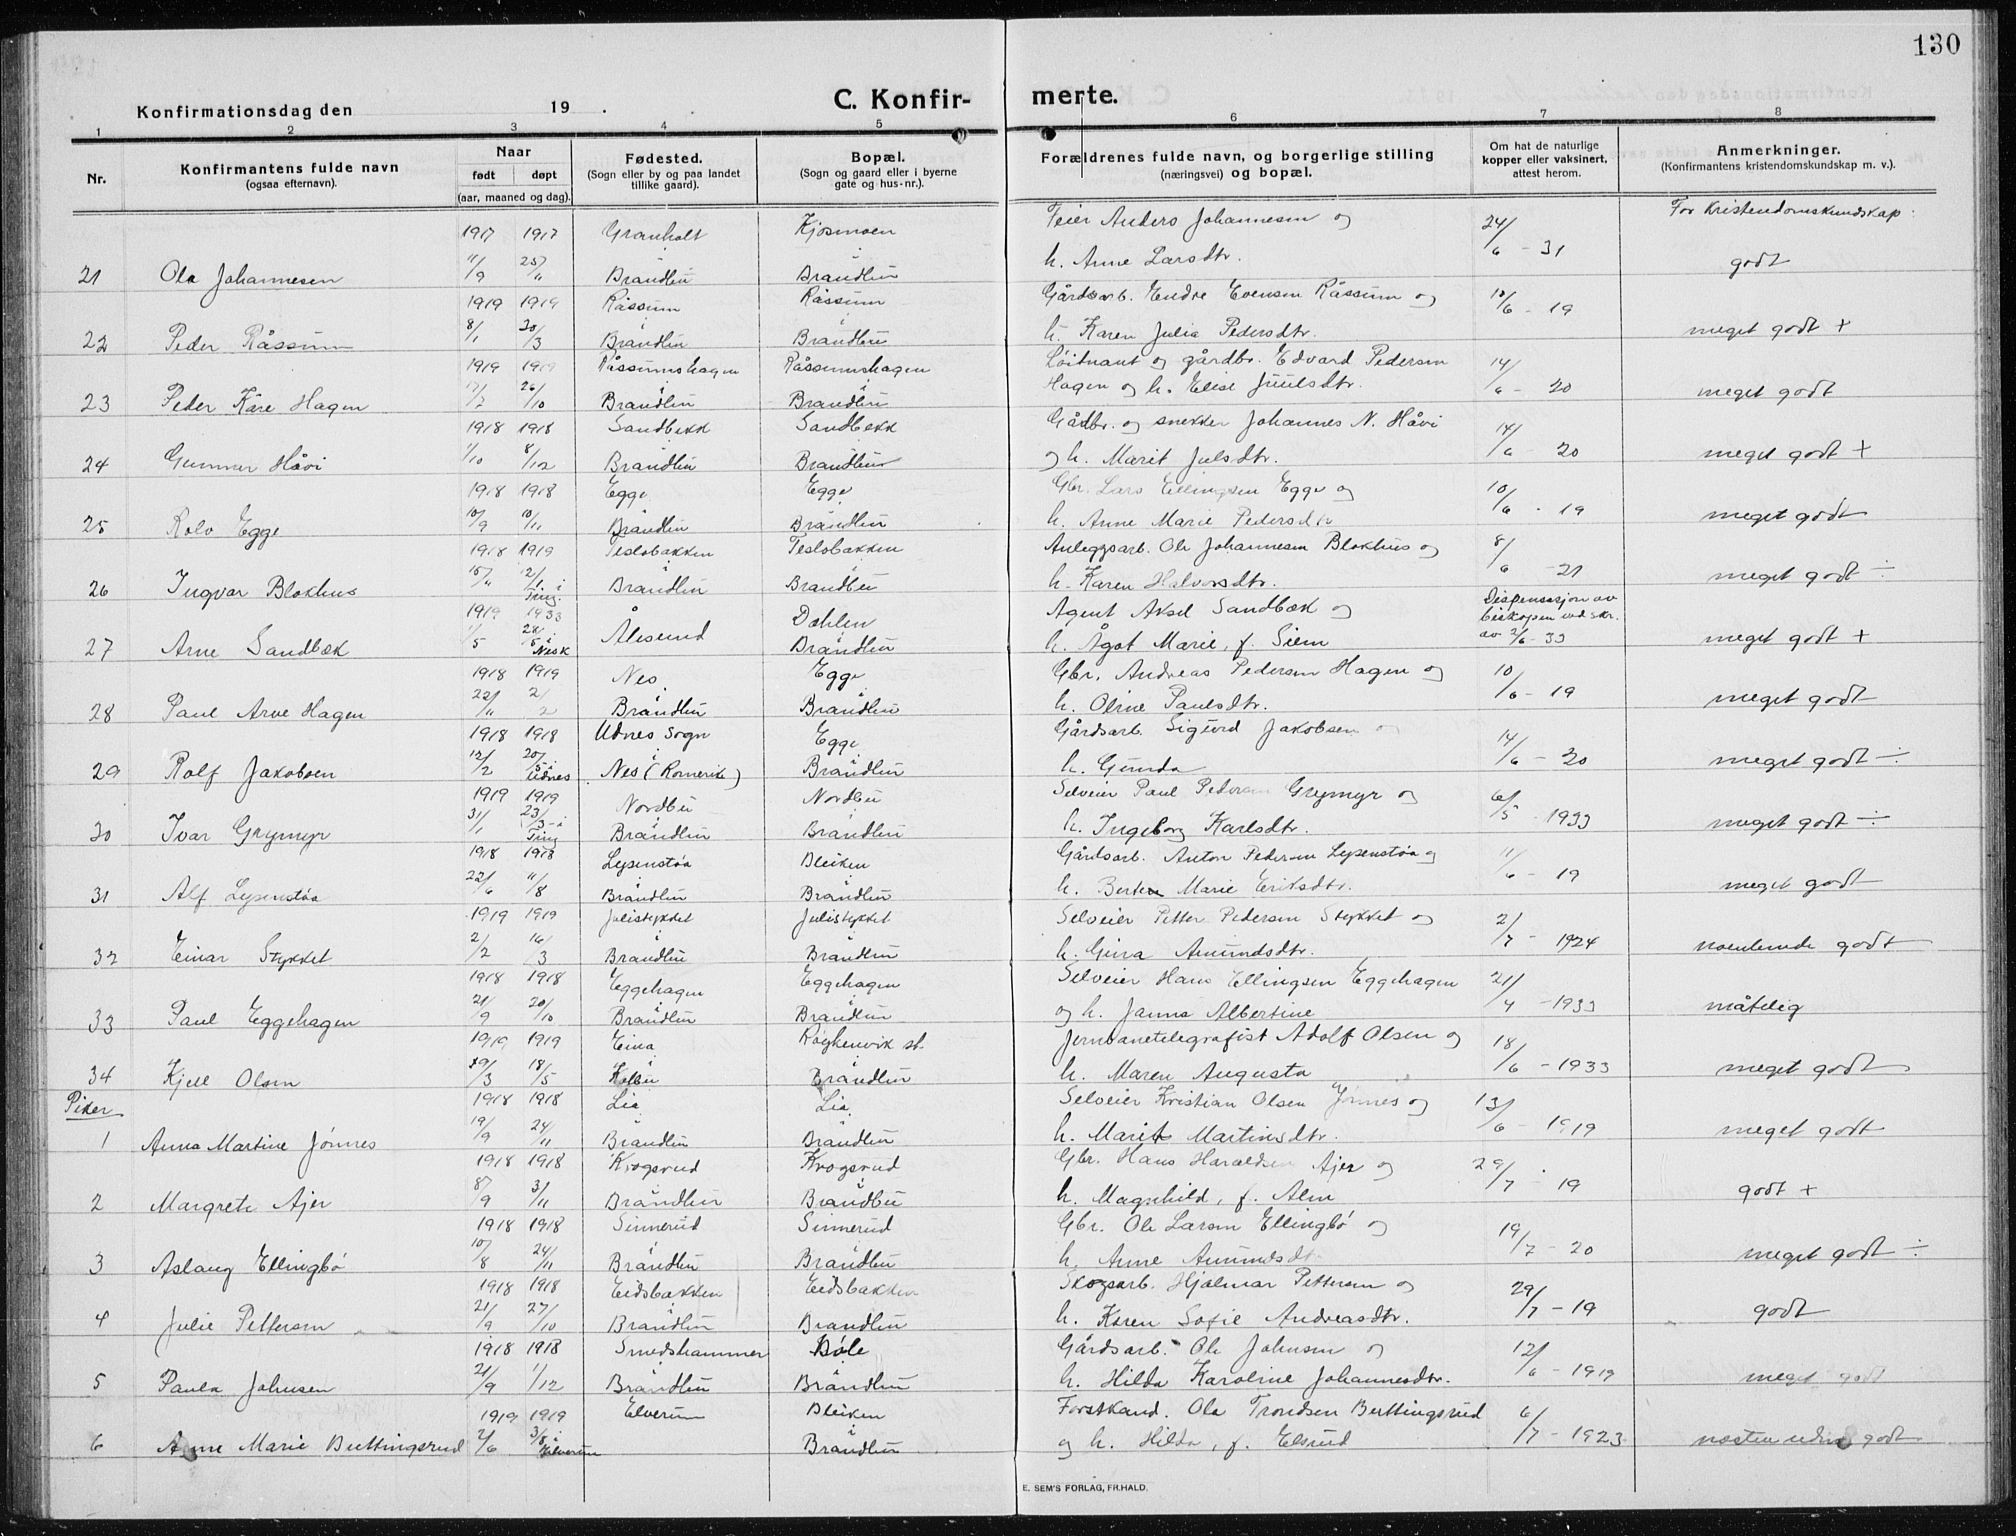 130
Konfirmationsdag den 19 .
C. Konfir-
merte.
1 2 3 4 5 6 7 8
Nr.
Konfirmantens fulde navn
(ogsaa efternavn).
Naar
født døpt
(aar, maaned og dag).
Fødested.
(Sogn eller by og paa landet
tillike gaard).
Bopæl.
(Sogn og gaard eller i byerne
gate og hus-nr.).
Forældrenes fulde navn, og borgerlige stilling
(næringsvei) og bopæl.
Om hat de naturlige
kopper eller vaksinert,
attest herom.
Anmerkninger.
(Konfirmantens kristendomskundskap m. v.).
For Kristendomskundskap:
1917 1917 Granholt Kjosmoen Feier Anders Johannesen og 24/6 - 31
21 Ola Johannesen 11/9 25/11 i Brandbu i Brandbu h. Anne Larsdtr. godt
1919 1919 Råssum Råssum Gårdsarb. Endre Evensen Råssum og 10/6 - 19
22 Peder Råssum 8/1 30/3 i Brandbu i Brandbu h. Karen Julia Pedersdtr. meget godt +
1919 1919 Råssumshagen Råssumshagen Løitnant og gårdbr. Edvard Pedersen 14/6 - 20
23 Peder Kåre Hagen 17/2 26/10 i Brandbu i Brandbu Hagen og h. Elise Juulsdtr. meget godt
1918 1918 Sandbekk Sandbekk Gådbr. og snekker Johannes N. Håvi 14/6 - 20
24 Gunnar Håvi 1/10 8/12 i Brandbu i Brandbu og h. Marit Julsdtr. meget godt +
1918 1918 Egge Egge Gbr. Lars Ellingsen Egge og 10/6 - 19
25 Rolv Egge 10/9 10/11 i Brandbu i Brandbu h. Anne Marie Pedersdtr meget godt
1918 1919 Teslobakken Teslobakken Anleggsarb. Ole Johannesen Blokhus og 8/6 - 21
26 Ingvar Blokhus 15/11 12/1 i Ting. i Brandbu i Brandbu h. Karen Halvorsdtr. meget godt ÷
1919 1933 Ålesund Dahlen Agent Aksel Sandbæk og Dispensasjon av
biskopen ved skr.
27 Arne Sandbæk 1/5 28/5 i Nesk i Brandbu h. Ågot Marie, f. Siem av 2/6-33 meget godt +
1918 1919 Nes Egge Gbr. Andreas Pedersen Hagen og 10/6 - 19
28 Paul Arve Hagen 22/11 2/2 i Brandbu i Brandbu h. Oline Paulsdtr. meget godt
1918 1918 Udnes sogn Egge Gårdsarb. Sigurd Jakobsen og 14/6 - 20
29 Rolf Jakobsen 12/2 20/5 i Udnes i Nes (Romerike) i Brandbu h. Gunda meget godt ÷
1919 1919 Nordbu Nordbu Selveier Paul Pedersen Grymyr og 6/5 - 1933
30 Ivar Grymyr 31/1 23/3 - i Ting i Brandbu i Brandbu h. Ingeborg Karlsdtr. meget godt ÷
1918 1918 Lysenstøa Bleiken Gårdsarb. Anton Pedersen Lysenstøa og 11/6 - 19
31 Alf Lysenstøa 22/6 11/8 i Brandbu i Brandbu h. Berte Marie Eriksdtr. meget godt
1919 1919 Julistykket Julistykket Selveier Petter Pedersen Stykket og 2/7 - 1924
32 Einar Stykket 2/2 16/3 i Brandbu i Brandbu h. Gura Amundsdtr. noenlunde godt
1918 1918 Eggehagen Eggehagen Selveier Hans Ellingsen Eggehagen 21/4 - 1933
33 Paul Eggehagen 21/9 20/10 i Brandbu i Brandbu og h. Janna Albertine måtelig
1919 1919 Eina Røykenvik st. Jernbanetelegrafist Adolf Olsen og 18/6 - 1933
34 Kjell Olsen 29/3 18/5 i Kolbu i Brandbu h. Maren Augusta meget godt
Piker
1918 1918 Lia Lia Selveier Kristian Olsen Jønnes og 13/6 - 1919
1 Anna Martine Jønnes 19/9 24/11 i Brandbu i Brandbu h. Marit Martinsdtr. meget godt
1918 1918 Krogsrud Krogsrud Gbr. Hans Haraldsen Ajer og 29/7 - 19
2 Margrete Ajer 8/9 3/11 i Brandbu i Brandbu h. Magnhild, f. Alm godt +
1918 1918 Sinnerud Sinnerud Gbr. Ole Larsen Ellingbø og 19/7 - 20
3 Aslaug Ellingbø 10/8 24/11 i Brandbu i Brandbu h. Anne Amundsdtr meget godt ÷
1918 1918 Eidsbakken Eidsbakken Skogsarb. Hjalmar Pettersen og 29/7 - 19
4 Julie Pettersen 21/9 27/10 i Brandbu i Brandbu h. Karen Sofie Andreasdtr. godt
1918 1918 Smedshammer Bøle Gårdsarb. Ole Johnsen og 12/6 - 1919
5 Paula Johnsen 21/9 1/12 i Brandbu i Brandbu h. Hilda Karoline Johannesdtr. meget godt
1919 1919 Elverum Bleiken Forstkand. Ola Trondsen Buttingsrud 6/7 - 1923
6 Anne Marie Buttingsrud 2/6 3/8 i Elverum i Brandbu og h. Hilda, f. Elsrud næsten udm. godt
E. SEM'S FORLAG, FR.HALD.